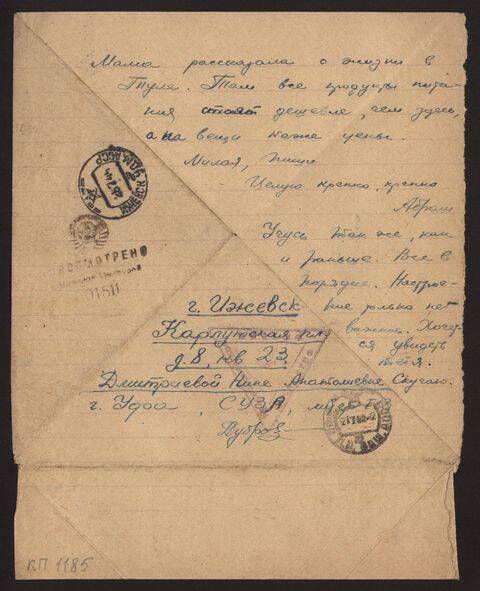 Мама рассказала о жизни в
Туле. Там все продукты пита-
ния стоят дешевле, чем здесь,
а на вещи те же цены.
Милая, пиши
Целую крепко, крепко
Абраш
Учусь так же, как
и раньше. Все в
порядке. Настрое-
ние только не
важное. Хочет-
ся увидеть
тебя.
Скучаю.
г. Ижевск
Карлутская пл
д. 8, кв 23
Дмитриевой Нине Анатольевне
г. Уфа, СУЗА,
Дубров
ИЖЕВСК УДМ. АССР
ПРОСМОТРЕНО
Военной Цензурой
01511
КП 1185